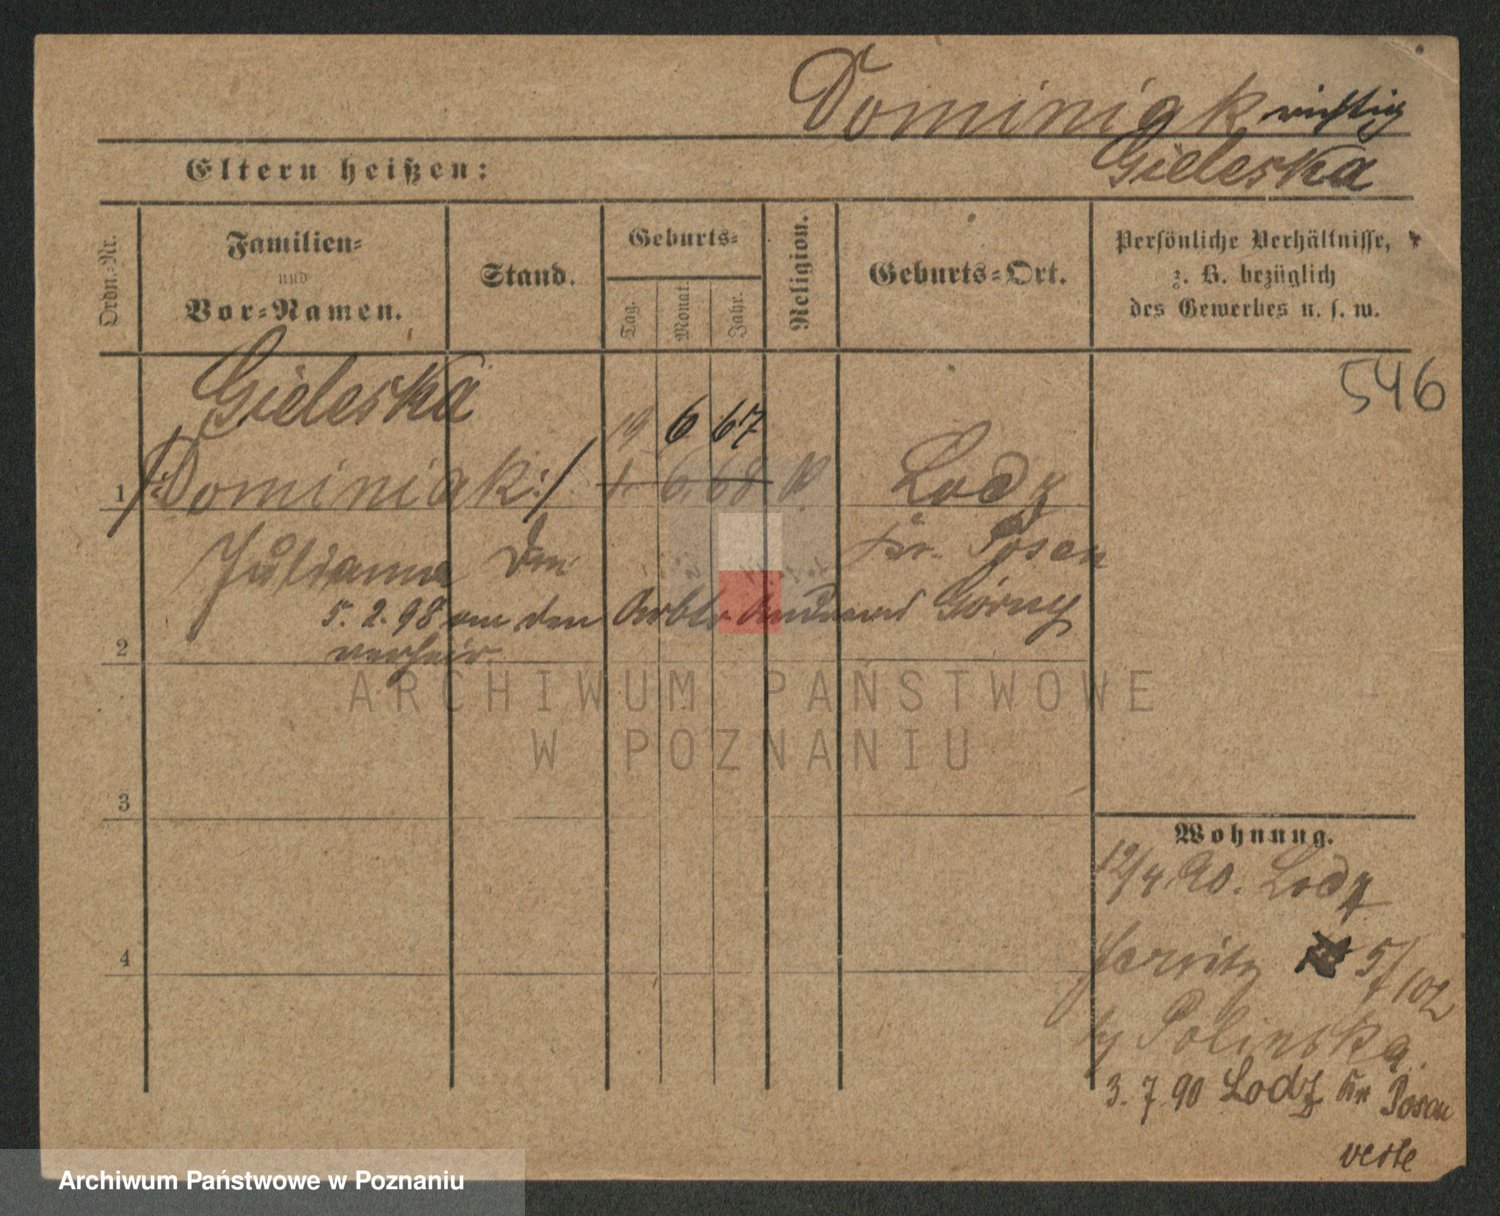 Dominiak richtig
Gieleska
Eltern heißen:
Ordn.-Nr.
Familien-
und
Vor-Namen.
Stand.
Geburts-
Tag.
Monat.
Jahr.
Religion.
Geburts-Ort.
Persönliche Verhältnisse,
z. B. bezüglich
des Gewerbes u. s. w.
546
Gieleska
19 6 67
1 /:Dominiak:/ 1. 6. 68 K Lodz
Julianna Kr. Posen
5. 2. 98 den Arbtr Górny
2 verheir.
3
4
Wohnung.
12/4. 90. Lodz
Jersitz 5/102
by Polinska.
3. 7. 90 Lodz Kr Posen
ARCHIWUM PAŃSTWOWE
W POZNANIU
Archiwum Państwowe w Poznaniu